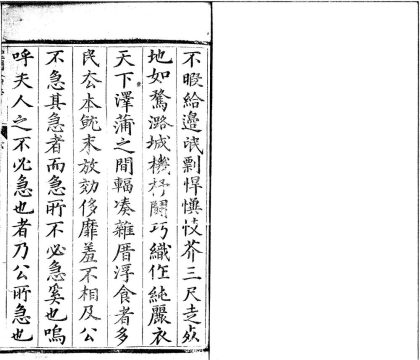 不暇給邉氓剽悍懻忮芥三尺走死
地如騖潞城機杼鬪巧織作純麗衣
天下澤蒲之間輻湊雜厝浮食者多
民去本就末放効侈靡羞不相及公
不急其急者而急所不必急奚也嗚
呼夫人之不必急也者乃公所急也